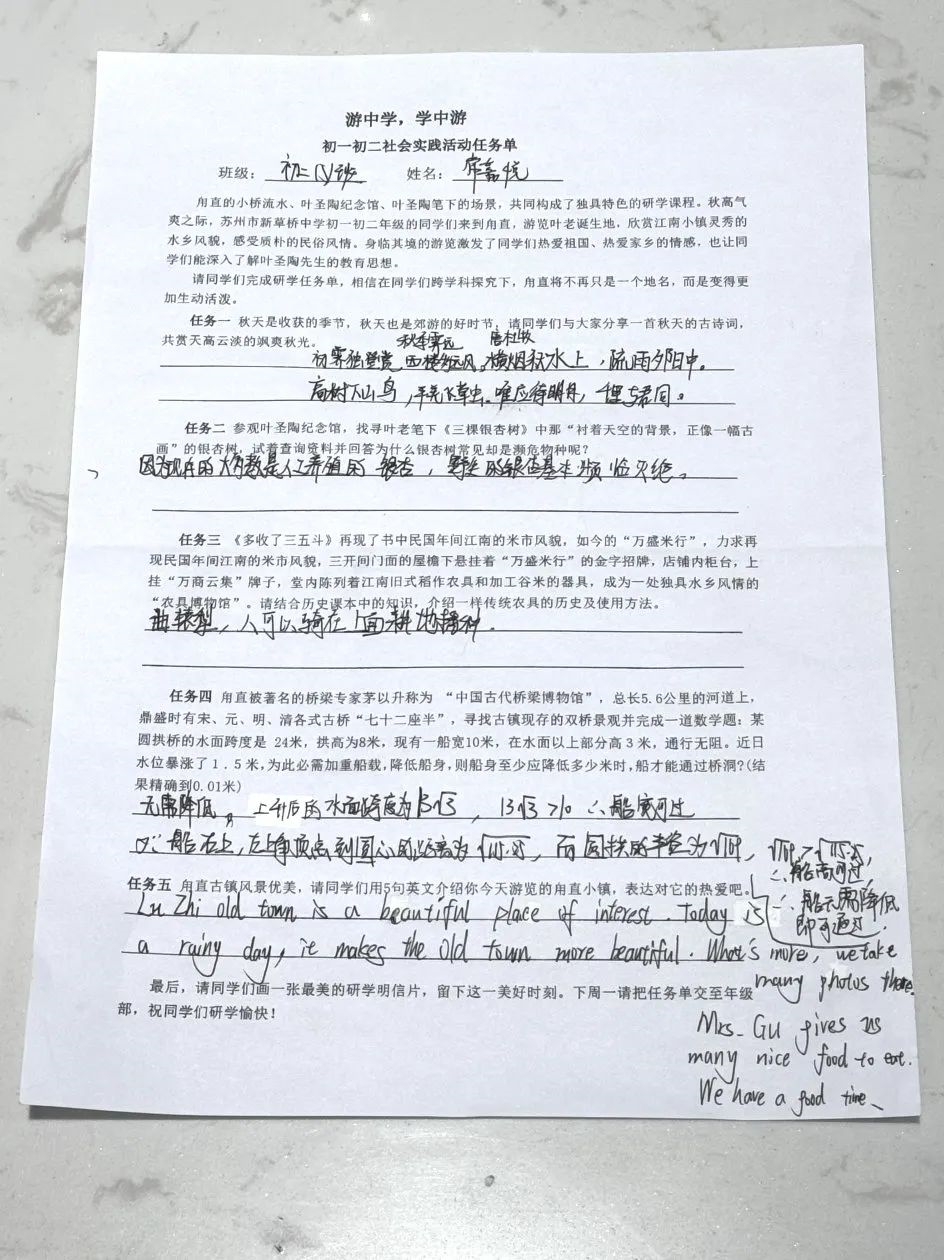 游中学，学中游
初一初二社会实践活动任务单
班级：初二 班 姓名：
甪直的小桥流水、叶圣陶纪念馆、叶圣陶笔下的场景，共同构成了独具特色的研学课程。秋高气
爽之际，苏州市新草桥中学初一初二年级的同学们来到甪直，游览叶老诞生地，欣赏江南小镇灵秀的
水乡风貌，感受质朴的民俗风情。身临其境的游览激发了同学们热爱祖国、热爱家乡的情感，也让同
学们能深入了解叶圣陶先生的教育思想。
请同学们完成研学任务单，相信在同学们跨学科探究下，甪直将不再只是一个地名，而是变得更
加生动活泼。
任务一 秋天是收获的季节，秋天也是郊游的好时节，请同学们与大家分享一首秋天的古诗词，
共赏天高云淡的飒爽秋光。
唐杜牧
初霁独登赏，西楼多远风。横烟秋水上，疏雨夕阳中。
高树下山鸟，平芜飞草虫。唯应待明月，千里与君同。
任务二 参观叶圣陶纪念馆，找寻叶老笔下《三棵银杏树》中那“衬着天空的背景，正像一幅古
画”的银杏树，试着查询资料并回答为什么银杏树常见却是濒危物种呢？
因为现在的大多数是人工养殖的银杏，野生的银杏基本频临灭绝。
任务三 《多收了三五斗》再现了书中民国年间江南的米市风貌，如今的“万盛米行”，力求再
现民国年间江南的米市风貌，三开间门面的屋檐下悬挂着“万盛米行”的金字招牌，店铺内柜台，上
挂“万商云集”牌子，堂内陈列着江南旧式稻作农具和加工谷米的器具，成为一处独具水乡风情的
“农具博物馆”。请结合历史课本中的知识，介绍一样传统农具的历史及使用方法。
曲辕犁，人可以骑在上面耕地播种.
任务四 甪直被著名的桥梁专家茅以升称为 “中国古代桥梁博物馆”，总长5.6公里的河道上，
鼎盛时有宋、元、明、清各式古桥“七十二座半”，寻找古镇现存的双桥景观并完成一道数学题：某
圆拱桥的水面跨度是 24米，拱高为8米，现有一船宽10米，在水面以上部分高 3 米，通行无阻。近日
水位暴涨了 1．5 米，为此必需加重船载，降低船身，则船身至少应降低多少米时，船才能通过桥洞？(结
果精确到0.01米)
无需降低， 上升后的水面跨度为13√3， 13√3 >10 ∴船宽可过
又∵船右上，左上角顶点到圆心的距离为√115.25，而圆拱的半径为√169，√169>√115.25，
∴船高可过，
∴船无需降低
即可通过.
任务五 甪直古镇风景优美，请同学们用5句英文介绍你今天游览的甪直小镇，表达对它的热爱吧。
Lu Zhi old town is a beautiful place of interest. Today is
a rainy day, it makes the old town more beautiful. What's more, we take
many photos there.
最后，请同学们画一张最美的研学明信片，留下这一美好时刻。下周一请把任务单交至年级
部，祝同学们研学愉快！
Mrs. Gu gives us
many nice food to eat.
We have a good time.